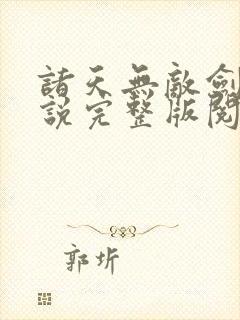 諸天無敵劍
說完整版閱
郭圻